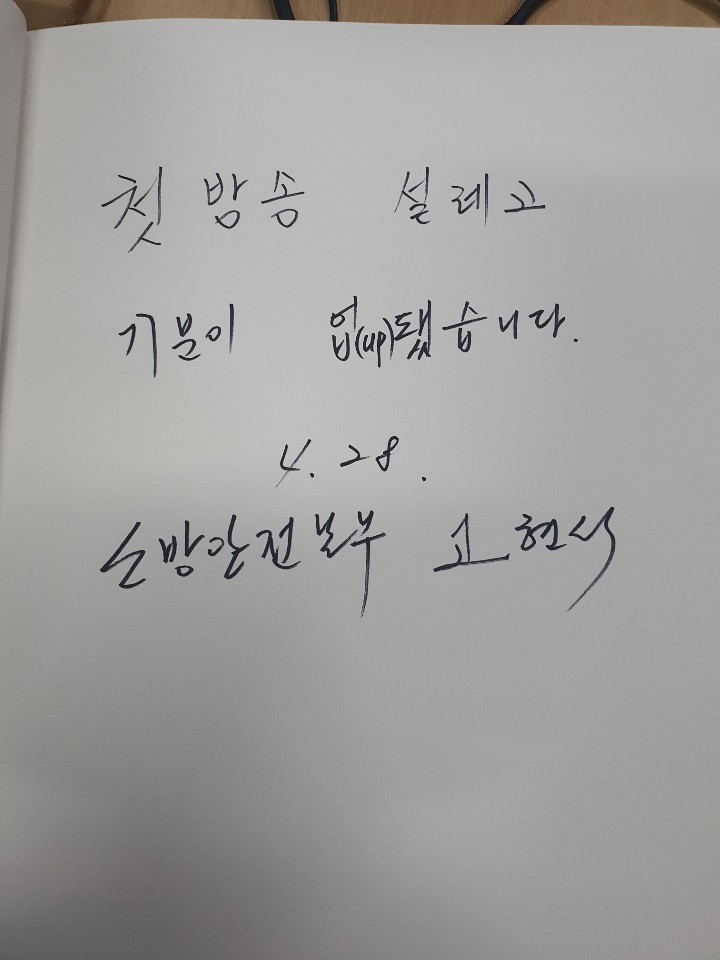 첫 방송 설레고
기분이 업(up)됐습니다.
4. 28.
소방안전본부 고현석